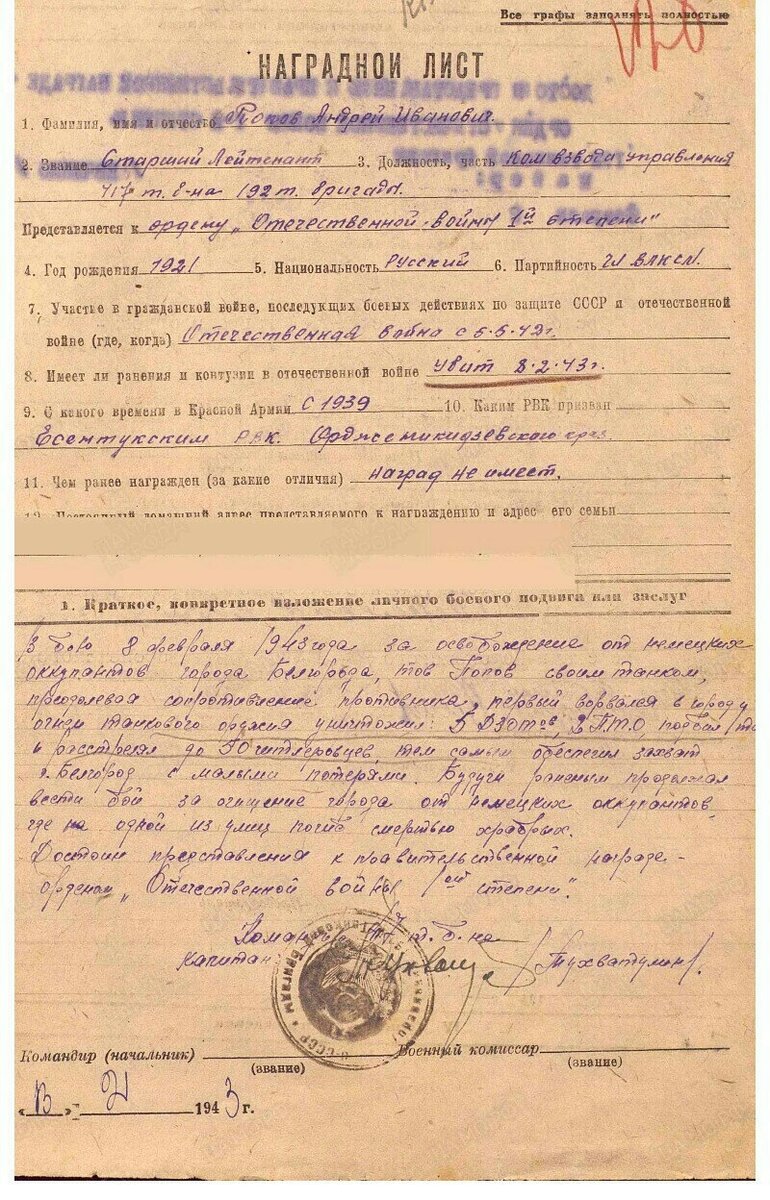 Все графы заполнять полностью
НАГРАДНОЙ ЛИСТ
1. Фамилия, имя и отчество Попов Андрей Иванович.
2. Звание Старший Лейтенант 3. Должность, часть Ком взвода управления
417 т. б-на 192 т. бригады.
Представляется к ордену „Отечественной войны 1й степени"
4. Год рождения 1921 5. Национальность Русский 6. Партийность Чл ВЛКСМ.
7. Участие в гражданской войне, последующих боевых действиях по защите СССР и отечественной
войне (где, когда) Отечественная война с 5.5.42г.
8. Имеет ли ранения и контузии в отечественной войне Убит 8.2.43г.
9. С какого времени в Красной Армии с 1939 10. Каким РВК призван
Есентукским РВК. Орджоникидзевского края
11. Чем ранее награжден (за какие отличия) наград не имеет.
12. Постоянный домашний адрес представляемого к награждению и адрес его семьи
1. Краткое, конкретное изложение личного боевого подвига или заслуг
В бою 8 февраля 1943 года за освобождение от немецких
оккупантов города Белгорода, тов Попов своим танком,
преодолевая сопротивление противника, первый ворвался в город и
огнем танкового оружия уничтожил: 5 ДЗОТов, 2 ПТО, подбил
и расстрелял до 70 гитлеровцев, тем самым обеспечил захват
г. Белгород с малыми потерями. Будучи раненым продолжал
вести бой за очищение города от немецких оккупантов,
где на одной из улиц погиб смертью храбрых.
Достоин представления к правительственной награде -
орденом „Отечественной войны 1ой степени".
Командир 417 т. б-на
капитан /Тухватулин/.
Командир (начальник) Военный комиссар
(звание) (звание)
1943 г.